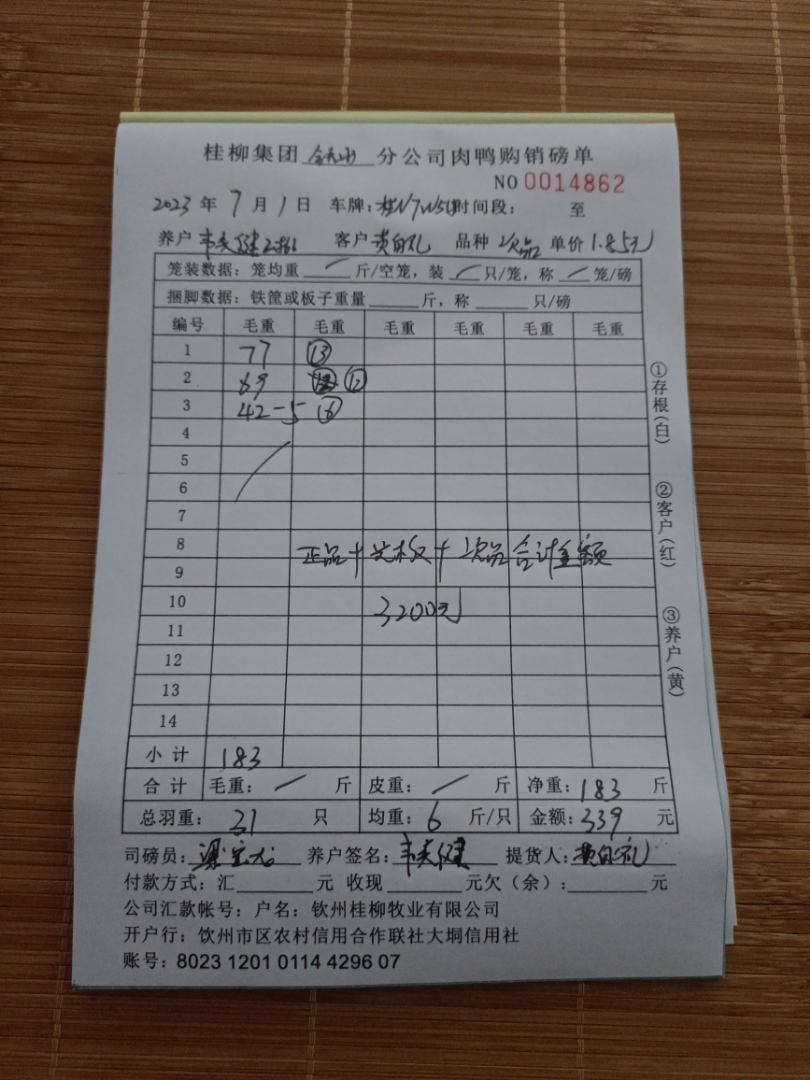 桂柳集团 钦州 分公司肉鸭购销磅单
NO 0014862
2023 年 7 月 1 日 车牌: 时间段: 至
养户 韦美健 客户 黄自礼 品种 次品 单价 1.85元
笼装数据: 笼均重 / 斤/空笼, 装 / 只/笼, 称 / 笼/磅
捆脚数据: 铁筐或板子重量 斤, 称 只/磅
编号 毛重 毛重 毛重 毛重 毛重 毛重
1 77 ⑬
2 69 ⑫
3 42-5 ⑥
4
5
6
7
8
正品+光板+次品合计金额
9
10
3200元
11
12
13
14
小计 183
合计 毛重: / 斤 皮重: / 斤 净重: 183 斤
总羽重: 31 只 均重: 6 斤/只 金额: 339 元
司磅员: 养户签名: 韦美健 提货人: 黄自礼
付款方式: 汇 元 收现 元欠(余): 元
公司汇款帐号: 户名: 钦州桂柳牧业有限公司
开户行: 饮州市区农村信用合作联社大垌信用社
账号: 8023 1201 0114 4296 07
①存根(白)
②客户(红)
③养户(黄)